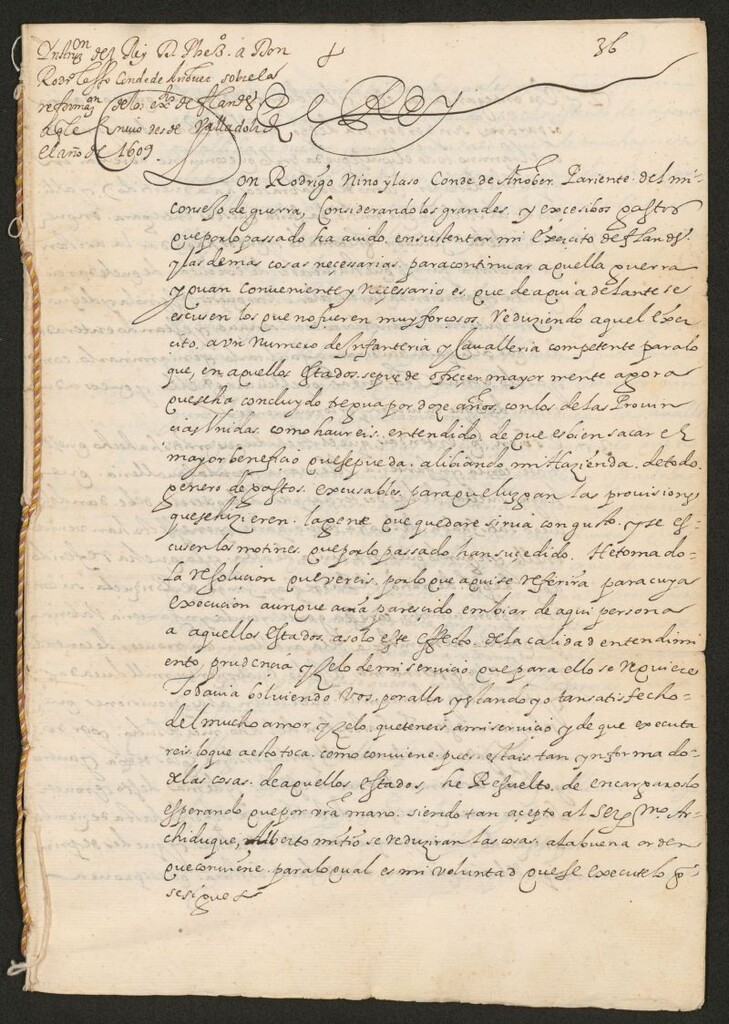 Ynstruon del Rey D. Phe 3º. a Don
Rodº Lasso Conde de Añover sobre la
reformaon de los extos de flandes
a q le Envio desde Valladolid
El año de 1609.
36
El Rey
Don Rodrigo Nino y laso Conde de Añober. Pariente. del mi
consejo de guerra, Considerando los grandes. y excesibos gastos
que por lo passado ha avido, en sustentar mi Exercito de flandes.
y las demas cosas necessarias. para continuar aquella guerra
y quan conveniente y necessario es, que de aqui adelante se
escusen los que no fueren muy forçosos, Reduziendo aquel exer
cito. a un numero de Infanteria y Cavalleria competente para lo
que, en aquellos estados. se puede ofrecer mayor mente agora
que se ha concluydo tregua por doze años. con los de las Provin
cias Unidas. como havreis. entendido, de que es bien sacar el
mayor beneficio que se pueda. alibiando mi Hazienda. de todo
genero de gastos. excusables. para que luzgan las provisiones
que se hizieren. la gente que quedare sirva con gusto. y se es-
cusen los motines. que por lo passado han sucedido. He tomado
la resolucion que vereis. por lo que aqui se referira. para cuya
execucion aunque avia parescido embiar de aqui persona
a aquellos estados, a solo este effecto. de la calidad entendimi
ento, prudencia y Zelo de mi servicio. que para ello se requiere
Todavia bolviendo Vos. por alla y estando yo tan satisfecho
del mucho amor. y Zelo. que teneis a mi servicio y de que executa
reis. lo que a esto toca. como conviene. pues. estais tan ynformado
de las cosas. de aquellos estados, he Resuelto. de encargaroslo
esperando, que por vra mano. siendo tan acepto al Sermo Ar-
chiduque, Alberto mi tio se reduziran las cosas. a la buena orden
que conviene. para lo qual es mi voluntad que se execute lo q
se sigue